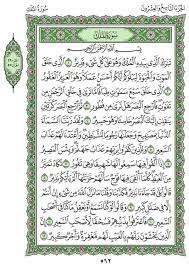 الجزء التاسع والعشرون
سورة الملك
سورة الملك
بسم الله الرحمن الرحيم
تبرك الذي بيده الملك وهو على كل شيء قدير ١ الذي خلق
الموت والحيوة ليبلوكم أيكم أحسن عملا وهو العزيز الغفور ٢
الذي خلق سبع سموت طباقا ما ترى في خلق الرحمن من تفوت
فارجع البصر هل ترى من فطور ٣ ثم ارجع البصر كرتين ينقلب
إليك البصر خاسئا وهو حسير ٤ ولقد زينا السماء الدنيا
بمصبيح وجعلنها رجوما للشيطين وأعتدنا لهم عذاب
السعير ٥ وللذين كفروا بربهم عذاب جهنم وبئس المصير ٦
إذا ألقوا فيها سمعوا لها شهيقا وهي تفور ٧ تكاد تميز من
الغيظ كلما ألقي فيها فوج سألهم خزنتها ألم يأتكم نذير ٨
قالوا بلى قد جاءنا نذير فكذبنا وقلنا ما نزل الله من شيء إن
أنتم إلا في ضلل كبير ٩ وقالوا لو كنا نسمع أو نعقل ما كنا في
أصحب السعير ١٠ فاعترفوا بذنبهم فسحقا لأصحب
السعير ١١ إن الذين يخشون ربهم بالغيب لهم مغفرة وأجر كبير ١٢
٥٦٢